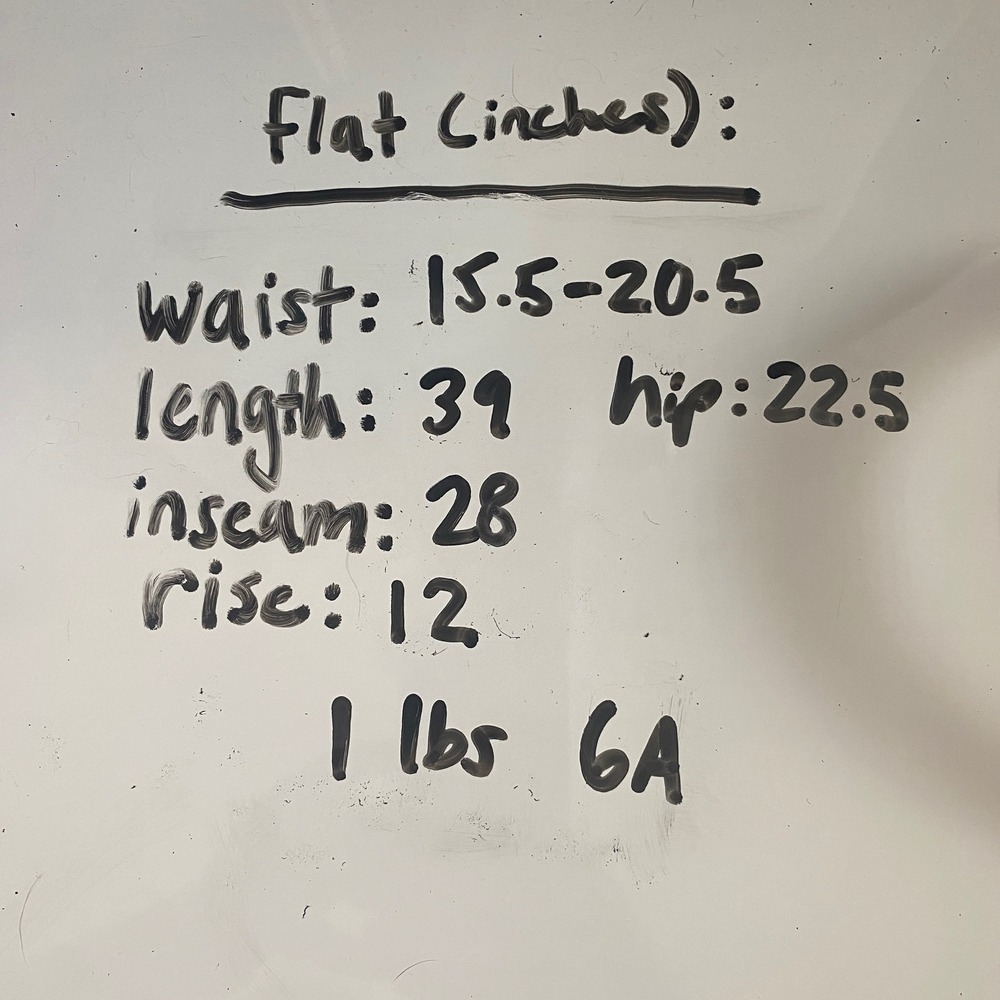 Flat (inches):
waist: 15.5-20.5
length: 39 hip: 22.5
inseam: 28
rise: 12
1 lbs 6A